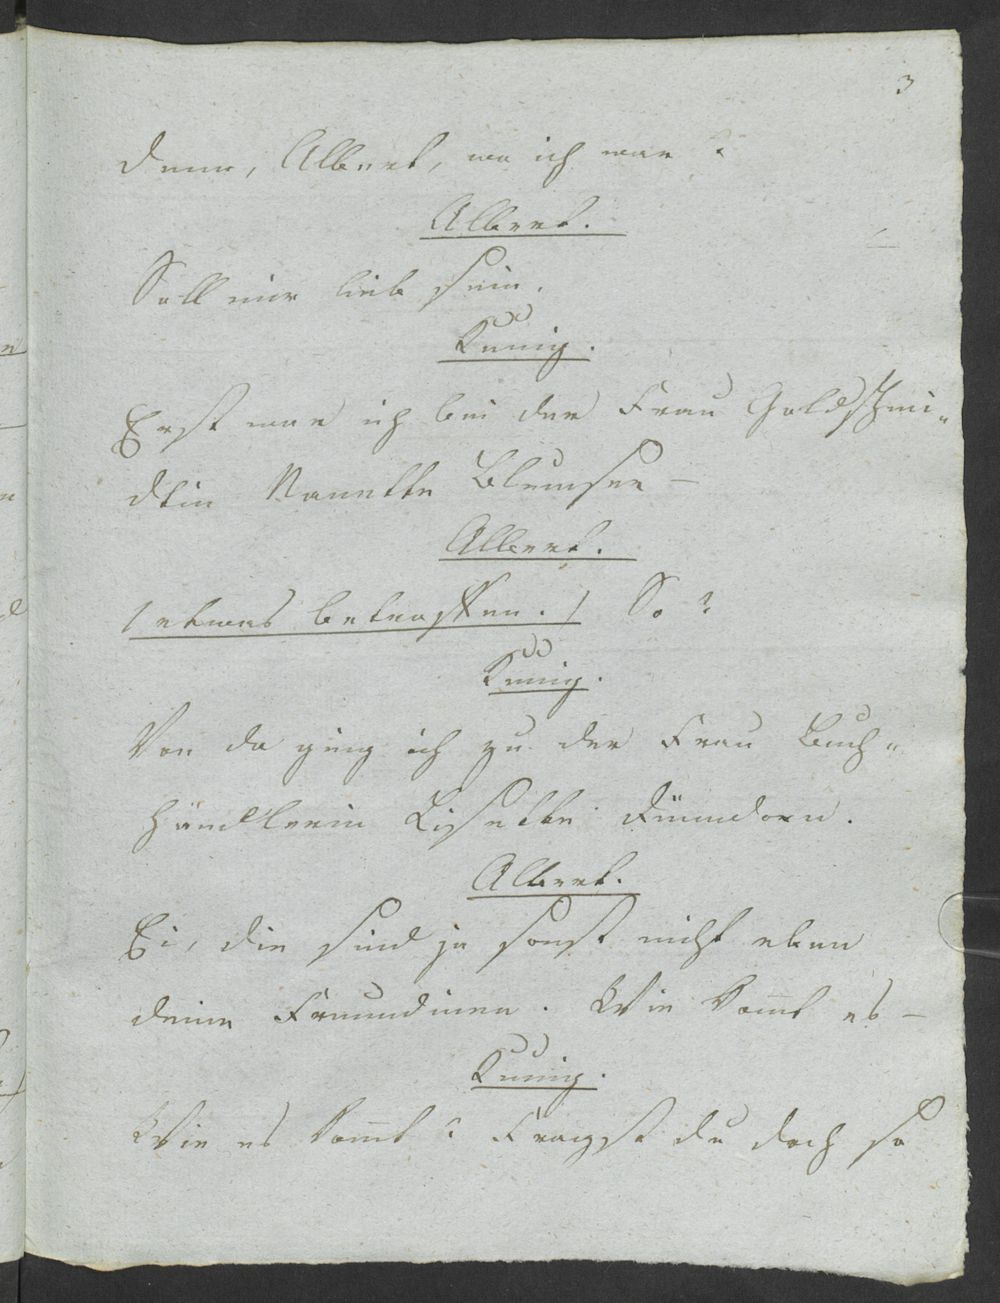 3
denn, Albert, wo ich war?
Albert.
Soll mir lieb sein.
Kunig.
Erst war ich bei der Frau Goldschmi-
dtin Nanette Blumser –
Albert.
/ etwas betroffen. / So?
Kunig.
Von da ging ich zu der Frau Buch-
händlerin Lisette Dürndorn.
Albert.
Ei, die sind ja sonst nicht eben
deine Freundinen. Wie kom̅t es –
Kunig.
Wie es kom̅t? Fragst du doch so